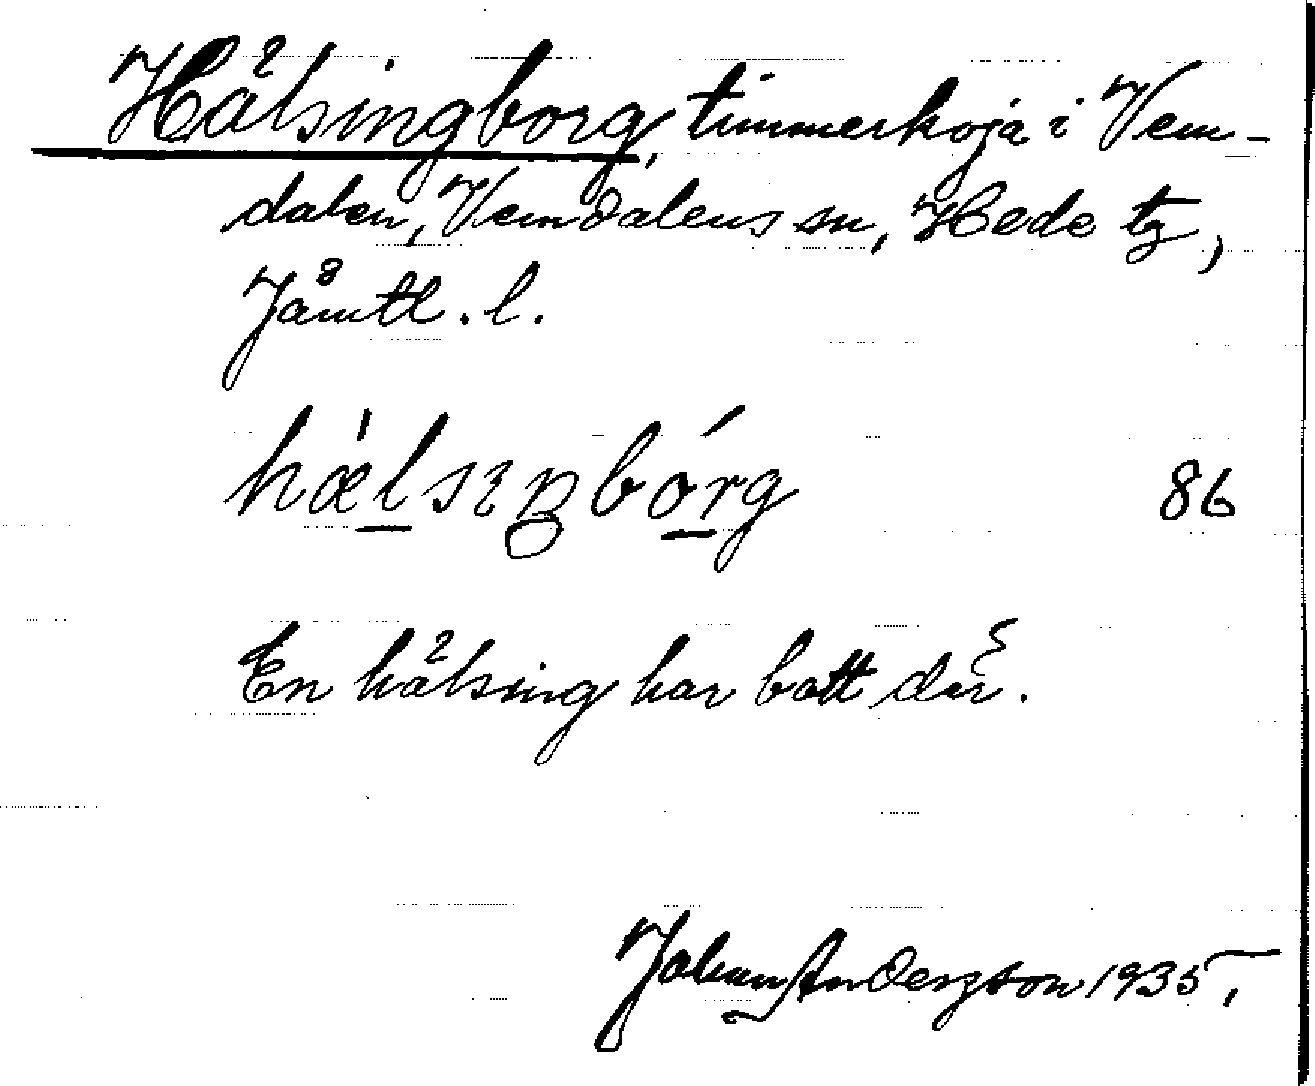 Hälsingborg, timmerkoja i Vem-
dalen, Vemdalens sn, Hede tg,
Jämtl. l.
hæ̀lsıŋbórg 86
En hälsing har bott där.
Johan Andersson 1935.